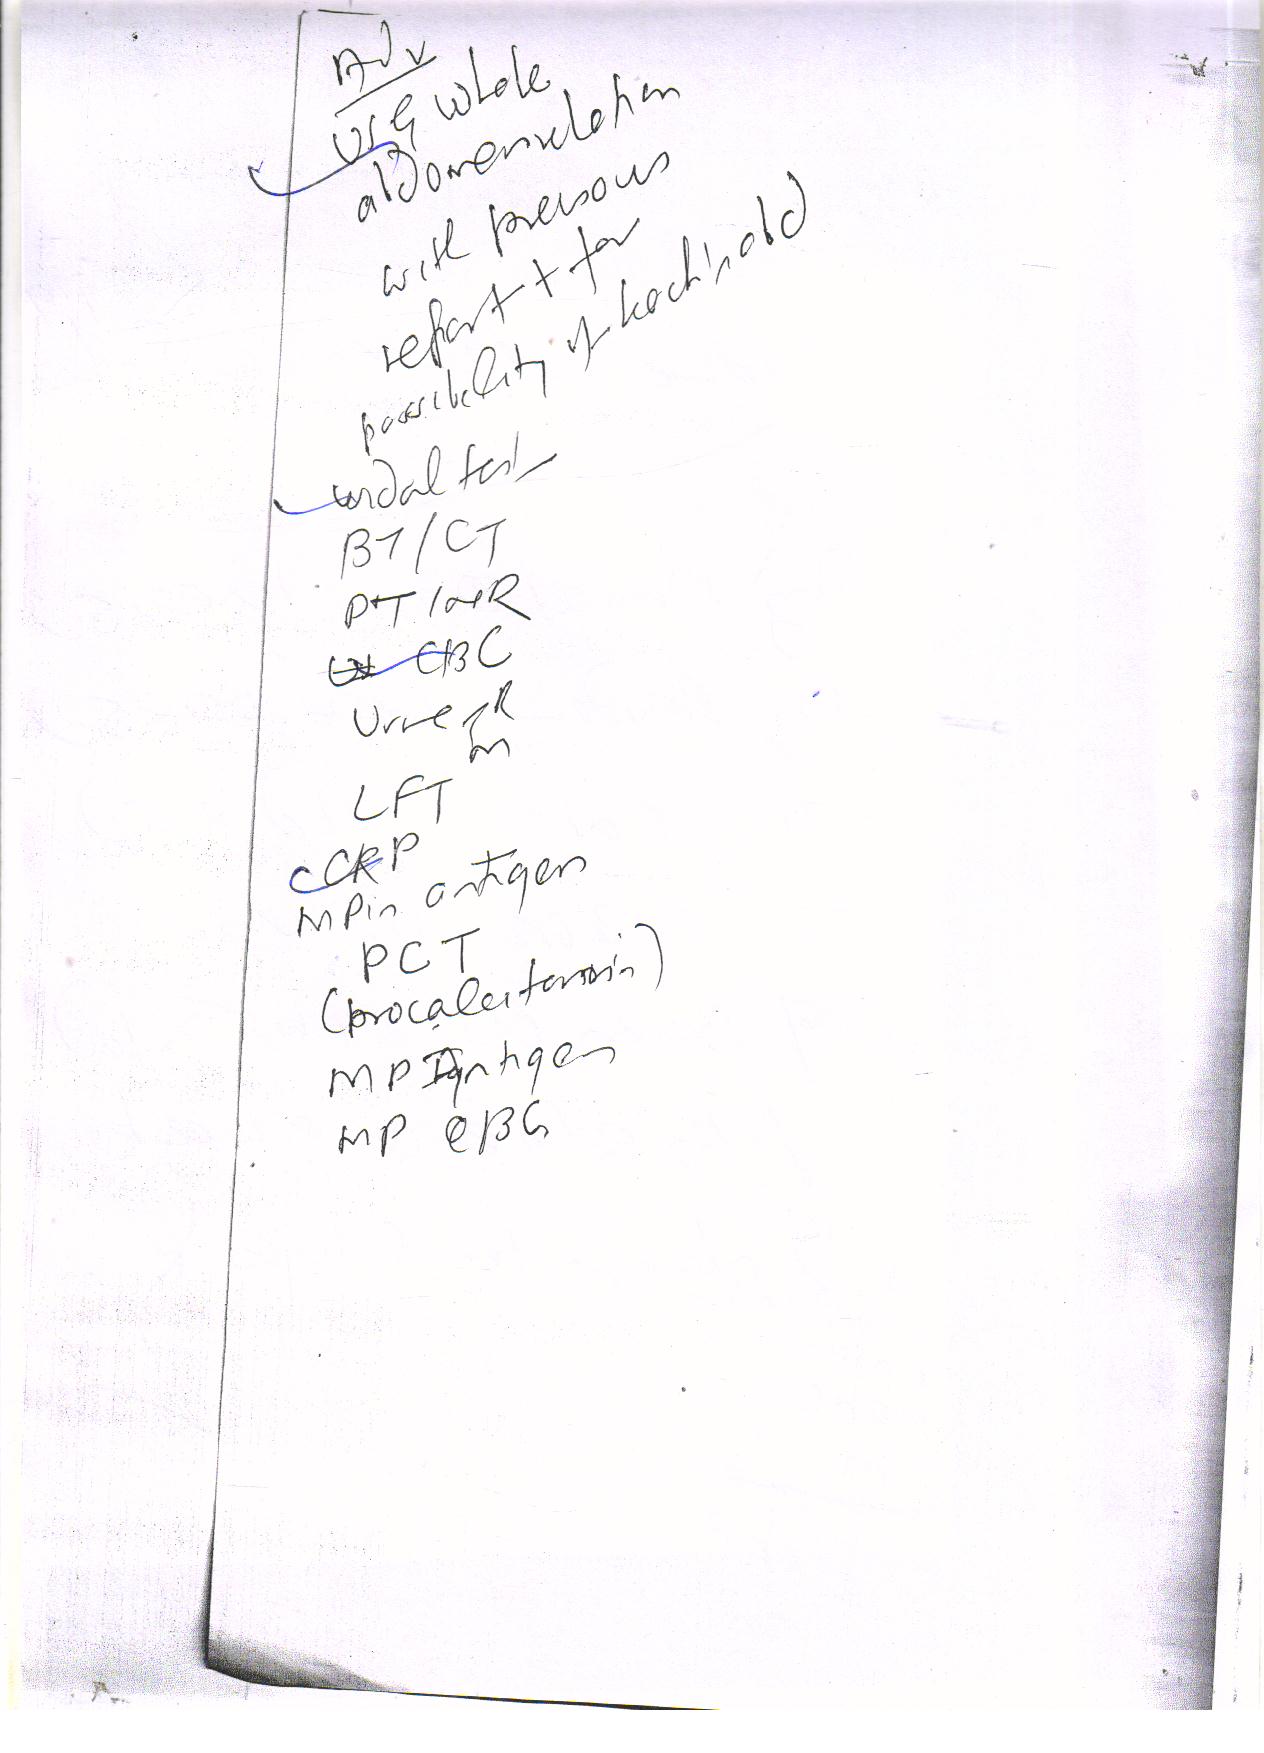 Adv
USG whole
abdomen relation
with previous
report + for
possibility of koch's abd
widal test
BT/CT
PT INR
CBC
Urine R
m
LFT
CRP
MP in antigen
PCT
(procalcitonin)
MP Antigen
MP QBC